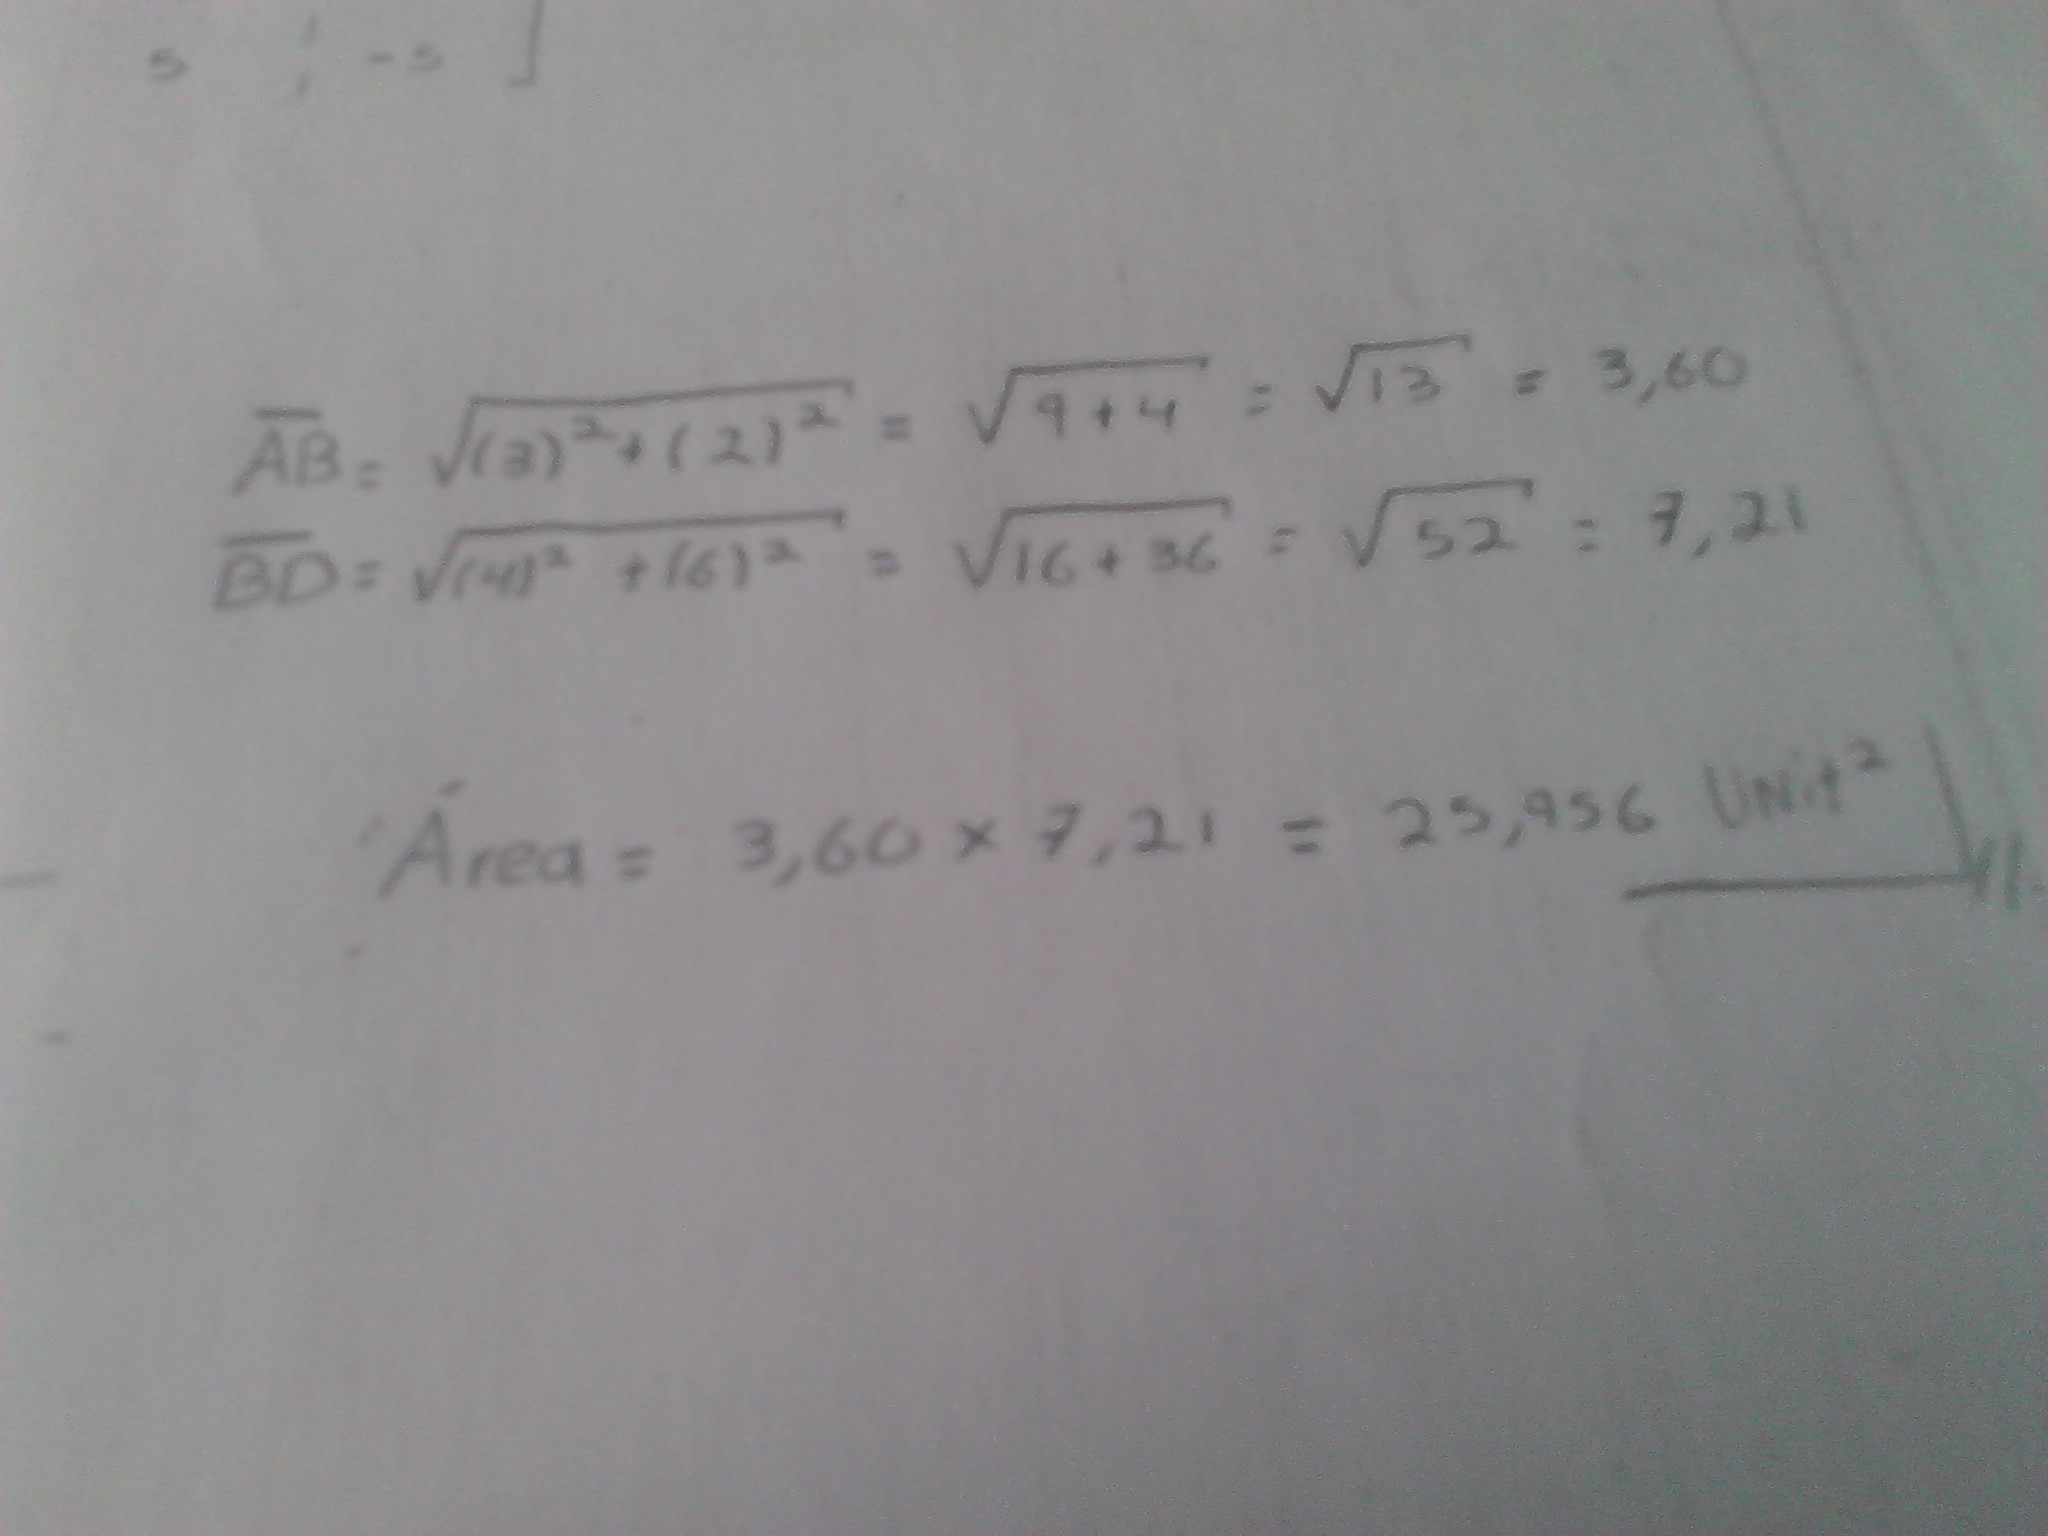 5 ; -5 ]
AB = √(3)² + (2)² = √9+4 = √13 = 3,60
BD = √(4)² + (6)² = √16+36 = √52 = 7,21
Área = 3,60 x 7,21 = 25,956 Unit²